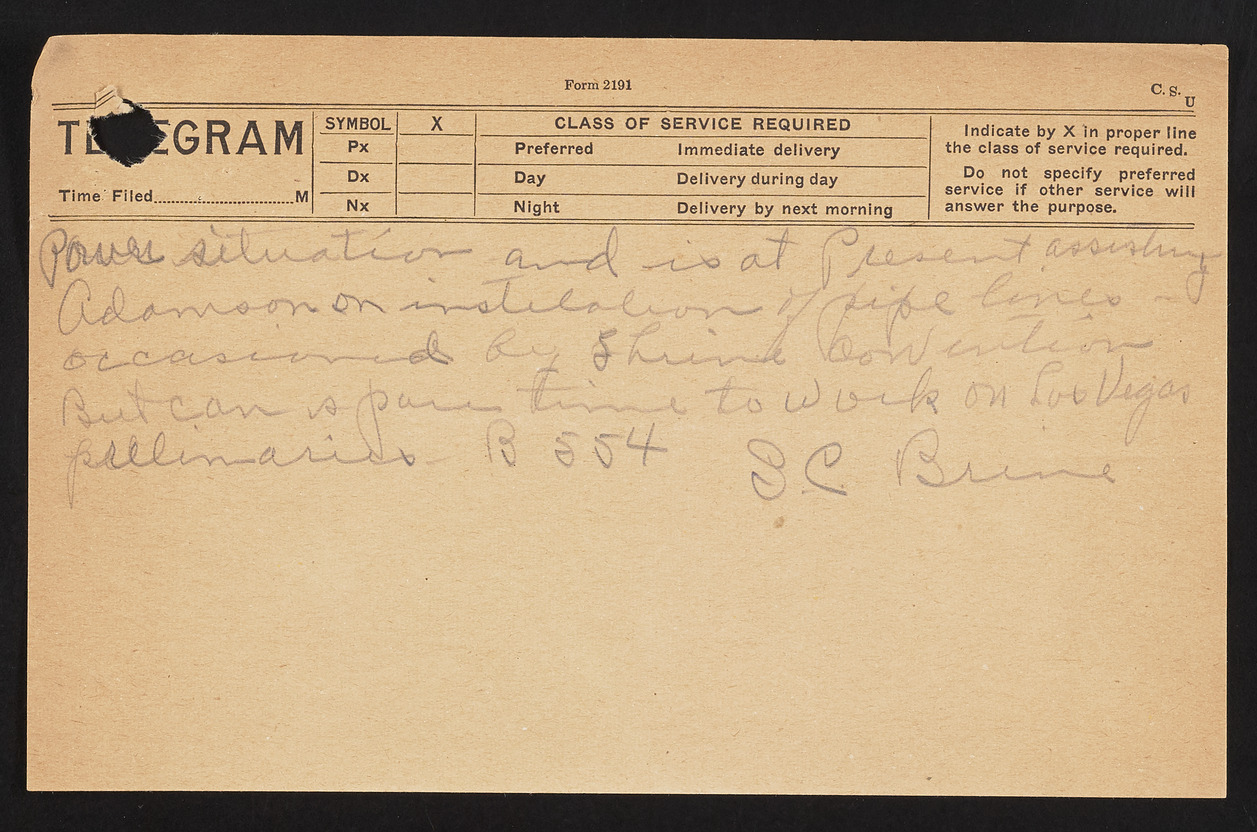 Form 2191
C. S. U
TELEGRAM
Time Filed M
SYMBOL X CLASS OF SERVICE REQUIRED
Px Preferred Immediate delivery
Dx Day Delivery during day
Nx Night Delivery by next morning
Indicate by X in proper line
the class of service required.
Do not specify preferred
service if other service will
answer the purpose.
Power situation and is at Present assisting
Adamson on instilation of pipe lines -
occasioned by Shrine Convention
But can spare time to work on Los Vegas
prelimaries B 554 S.C. Brine